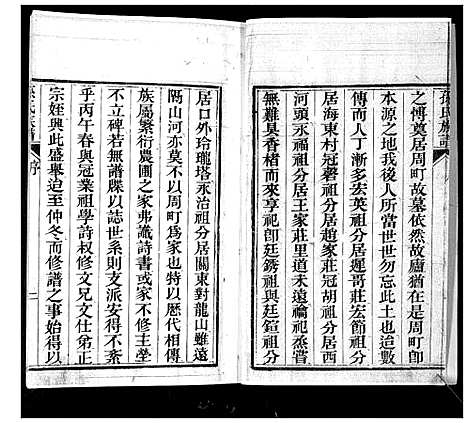 之傅奠居周町故墓依然故廬猶在是周町卽
本源之地我後人所當世世勿忘此土也迨數
傳而人丁漸多宏英祖分居遲哥莊宏節祖分
居海東村冠磬祖分居趙家莊冠胡祖分居西
河頭永福祖分居王家莊里道未遠禴祀烝嘗
無難臭香楮而來享祀卽廷銹祖與廷鍹祖分
居口外玲瓏塔永治祖分居關東對龍山雖遠
隔山河亦莫不以周町為家也特以歷代相傳
族屬繁衍農圃之家弗識詩書或家不修主塋
不立碑若無譜牒以誌世系則支派安得不紊
乎丙午春與冠業祖學詩权修文兄文仕弟正
宗姪興此盛舉迨至仲冬而修譜之事始得以
孫氏族譜
序
二